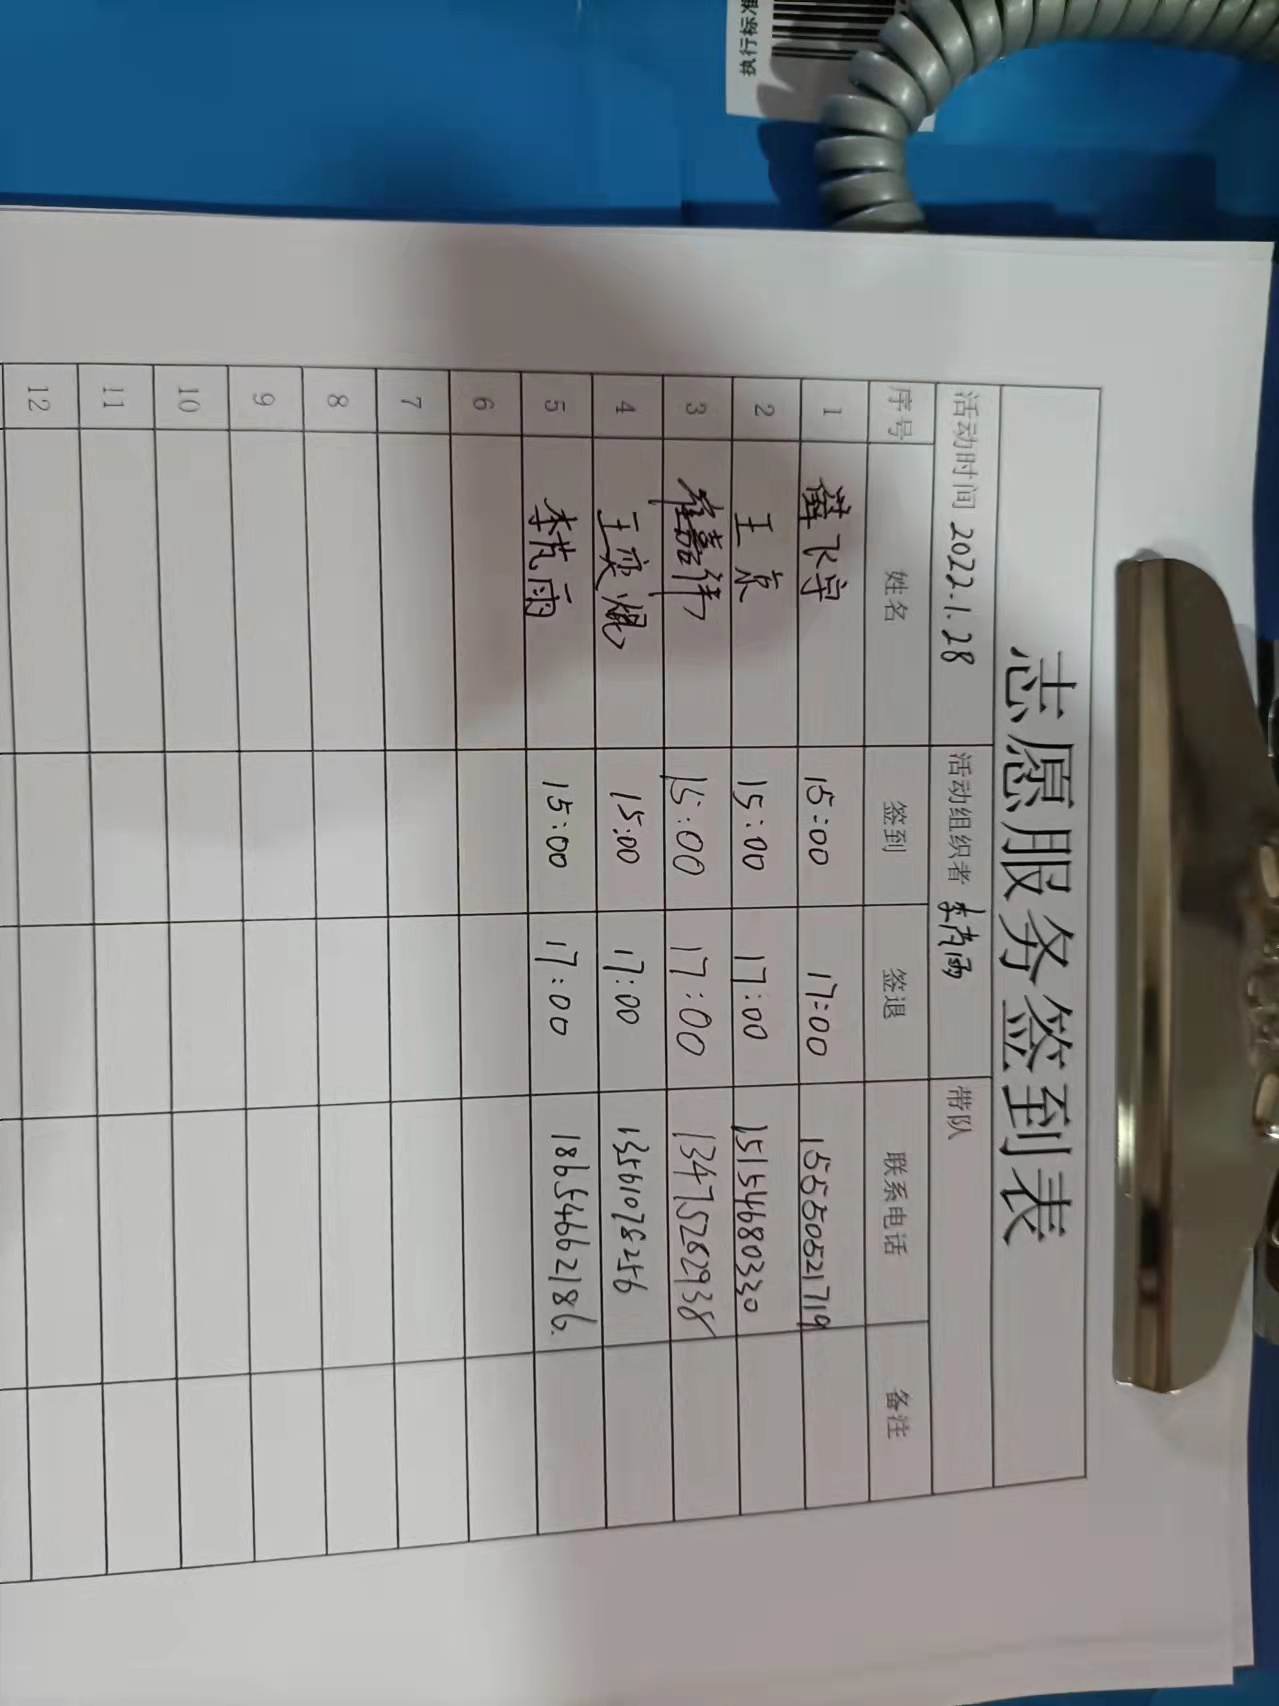 执行标准
志愿服务签到表
活动时间 2022.1.28 活动组织者 带队
序号 姓名 签到 签退 联系电话 备注
1 薛飞宇 15:00 17:00 15550521719
2 王京 15:00 17:00 15154680330
3 崔嘉伟 15:00 17:00 13475262938
4 王奕焜 15:00 17:00 13561078256
5 李芃雨 15:00 17:00 18654662186
6
7
8
9
10
11
12